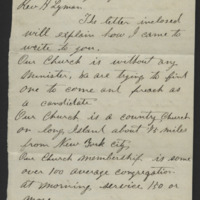 Rev A Lyman.
The letter inclosed
will explain how I came to
write to you.
Our Church is without any
Minister, & are trying to find
one to come and preach as
a candidate
Our Church is a country Church
on long Island about miles
from New York city.
Our Church membership is some
over 100 average congregation
at morning service 150 or
more